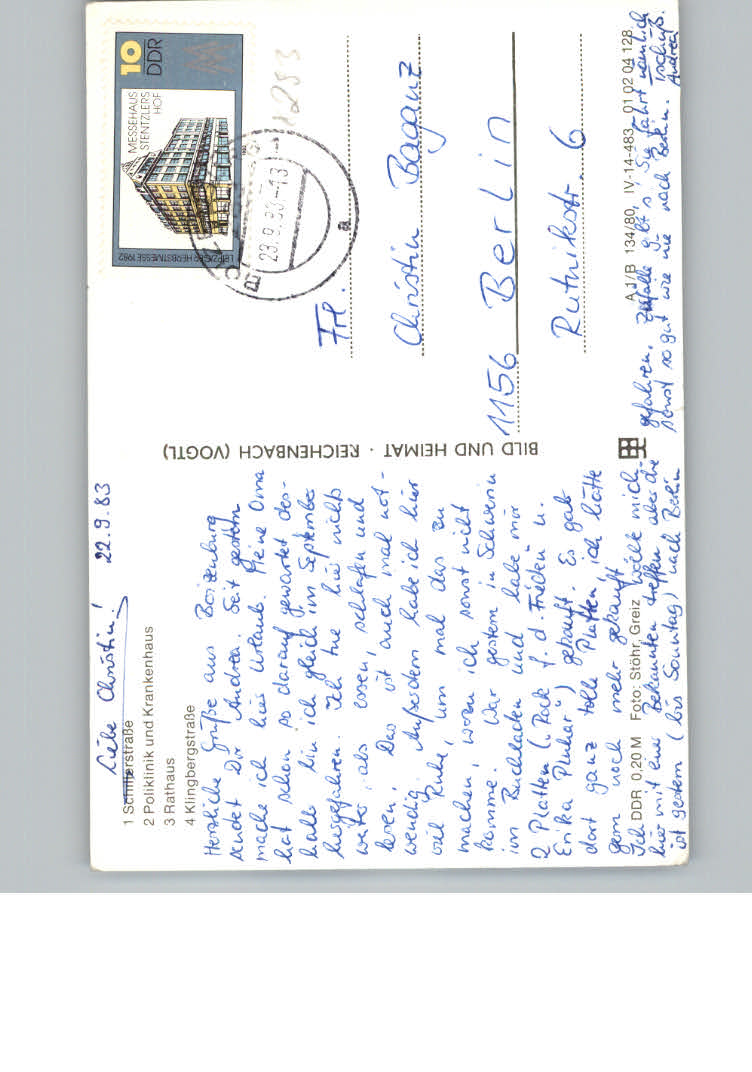 Liebe Christin! 22.9.83
1 Schillerstraße
2 Poliklinik und Krankenhaus
3 Rathaus
4 Klingbergstraße
Herzliche Grüße aus Boizenburg
sendet Dir Andrea. Seit gestern
mache ich hier Urlaub. Meine Oma
hat schon so darauf gewartet des-
halb bin ich gleich im September
hergefahren. Ich tue hier nichts
weiter, als essen, schlafen und
lesen. Das ist auch mal not-
wendig. Außerdem habe ich hier
viel Ruhe, um mal das zu
machen, wozu ich sonst nicht
komme. War gestern in Schwerin
im Buchladen und habe mir
2 Platten („Rock f. d. Frieden“ u.
Erika Pluhar“) gekauft. Es gab
dort ganz tolle Platten, ich hätte
gern noch mehr gekauft
Ich DDR 0,20 M Foto: Stöhr, Greiz wollte mich
hier mit einer Bekannten treffen aber die
ist gestern (bis Sonntag) nach Berlin
gefahren. Zufälle gibt's. Sie fährt nämlich
sonst so gut wie nie nach Berlin. Tschüß.
Andrea
BILD UND HEIMAT · REICHENBACH (VOGTL)
A 1/B 134/80 IV-14-483 01 02 04 128
10
DDR
MESSEHAUS
STENTZLERS
HOF
LEIPZIGER HERBSTMESSE 1982
23.9.83-13
a
Frl.
Christin Baganz
1156 Berlin
Rutnikstr. 6